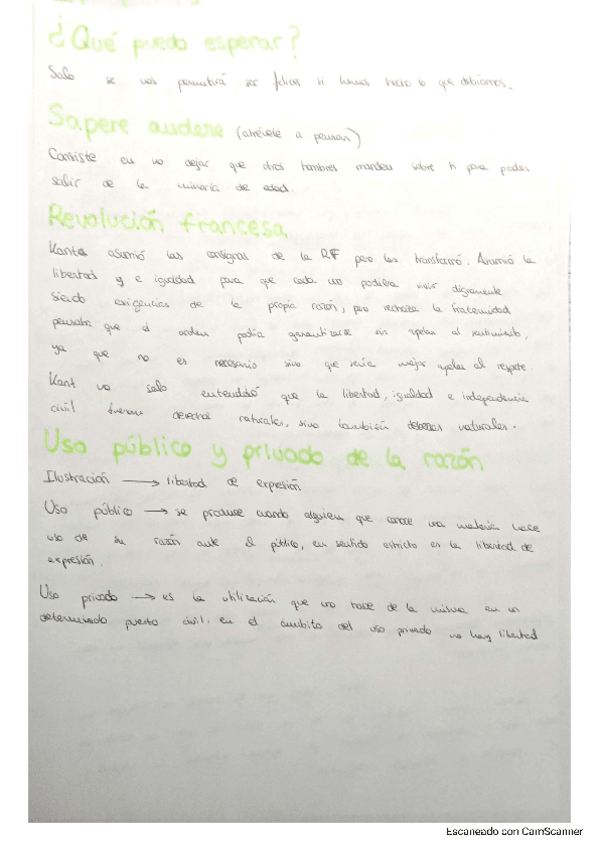 ¿Qué puedo esperar?
Solo se nos permitirá ser felices si hemos hecho lo que debíamos.
Sapere audere (atrévete a pensar)
Consiste en no dejar que otros hombres manden sobre ti para poder
salir de la minoría de edad.
Revolución francesa
Kant asumió las consignas de la RF pero las transformó. Asumió la
libertad y e igualdad para que cada uno pudiera vivir dignamente
siendo exigencias de la propia razón, pero rechaza la fraternidad
pensaba que el orden podía garantizarse sin apelar al sentimiento,
ya que no es necesario sino que sería mejor apelar al respeto.
Kant no solo entendió que la libertad, igualdad e independencia
civil fueran derechos naturales, sino también deberes naturales.
Uso público y privado de la razón
Ilustración → libertad de expresión
Uso público → se produce cuando alguien que conoce una materia hace
uso de su razón ante el público, en sentido estricto es la libertad de
expresión.
Uso privado → es la utilización que uno hace de la misma en un
determinado puesto civil. en el ámbito del uso privado no hay libertad
Escaneado con CamScanner